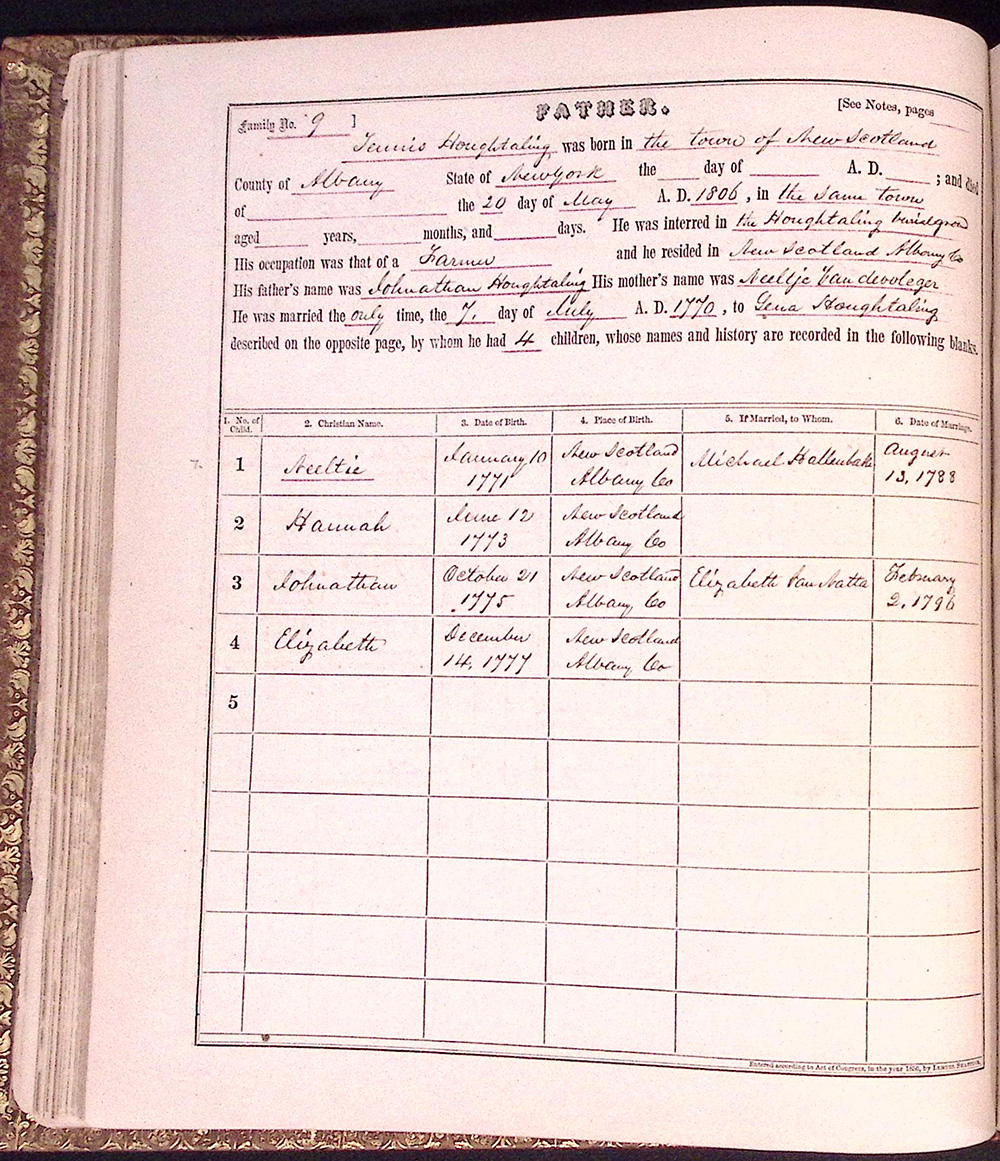 FATHER.
[See Notes, pages
Family No. 9 ]
Teunis Houghtaling was born in the town of New Scotland
County of Albany State of New York the day of A. D. ; and died
of the 20 day of May A. D. 1806, in the same town
aged years, months, and days. He was interred in the Houghtaling
His occupation was that of a Farmer and he resided in New Scotland Albany Co
His father's name was Johnathan Houghtaling His mother's name was Neeltje Vandevoleger
He was married the only time, the 7. day of July A. D. 1770, to Gena Houghtaling
described on the opposite page, by whom he had 4 children, whose names and history are recorded in the following blanks.
1. No. of Child. 2. Christian Name. 3. Date of Birth. 4. Place of Birth. 5. If Married, to Whom. 6. Date of Marriage.
7. 1 Neeltie January 10 1771 New Scotland Albany Co Michael Hallenbake August 13, 1788
2 Hannah June 12 1773 New Scotland Albany Co
3 Johnathan October 21 1775 New Scotland Albany Co Elizabeth Van Natta February 2, 1796
4 Elizabeth December 14, 1777 New Scotland Albany Co
5
Entered according to Act of Congress, in the year 1856, by LEMUEL SHATTUCK.